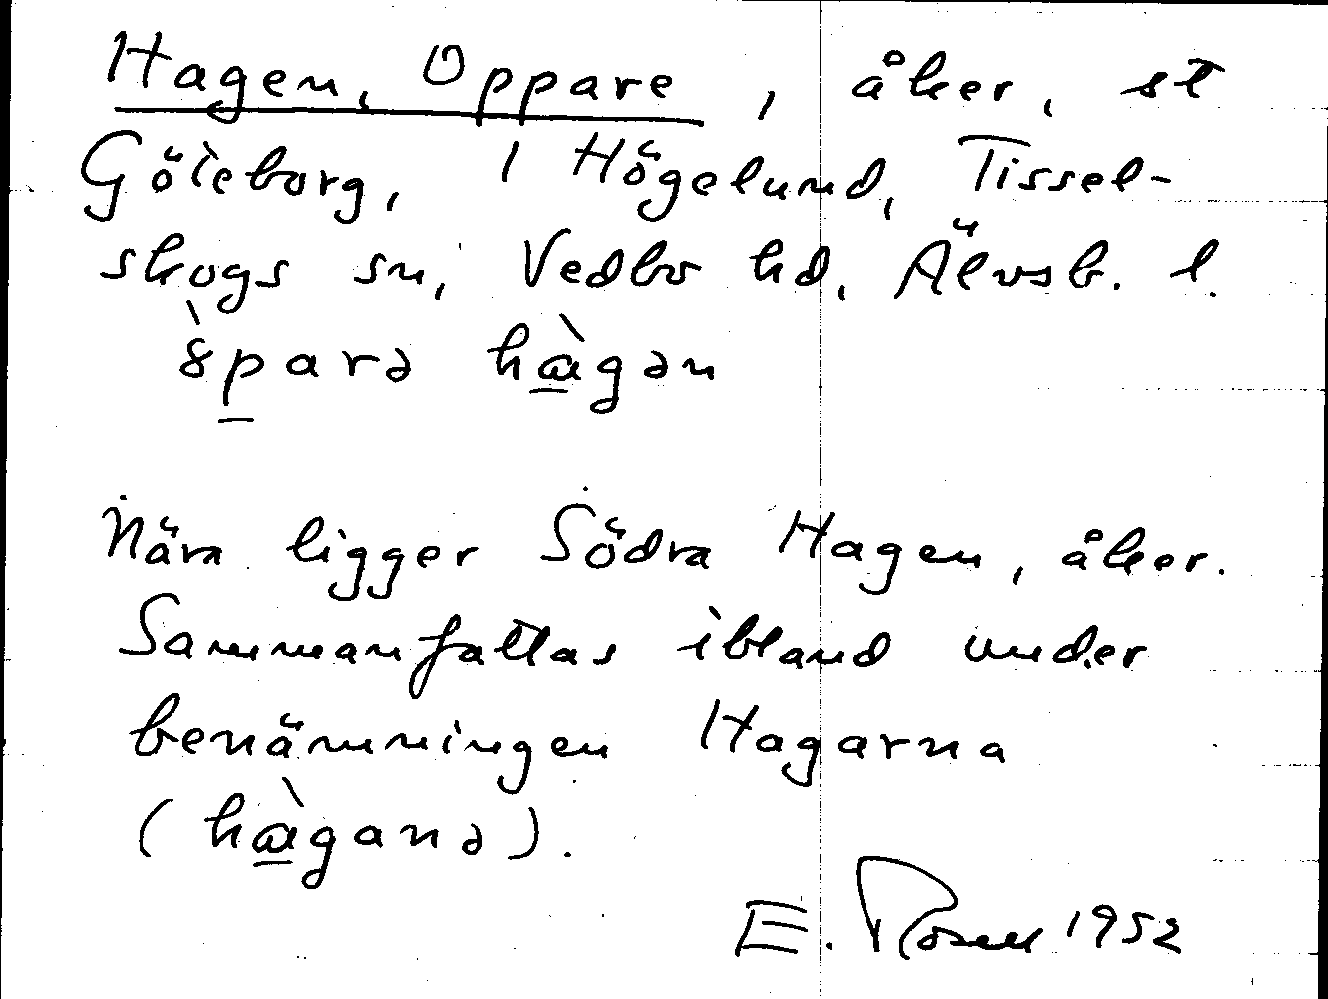 Hagen, Oppare, åker, st
Göteborg, 1 Högelund, Tissel-
skogs sn, Vedbo hd, Älvsb. l.
ȣ̀p̲arə hà̲gən
Nära ligger Södra Hagen, åker.
Sammanfattas ibland under
benämningen Hagarna
(hà̲ganə).
E. Rosell 1952